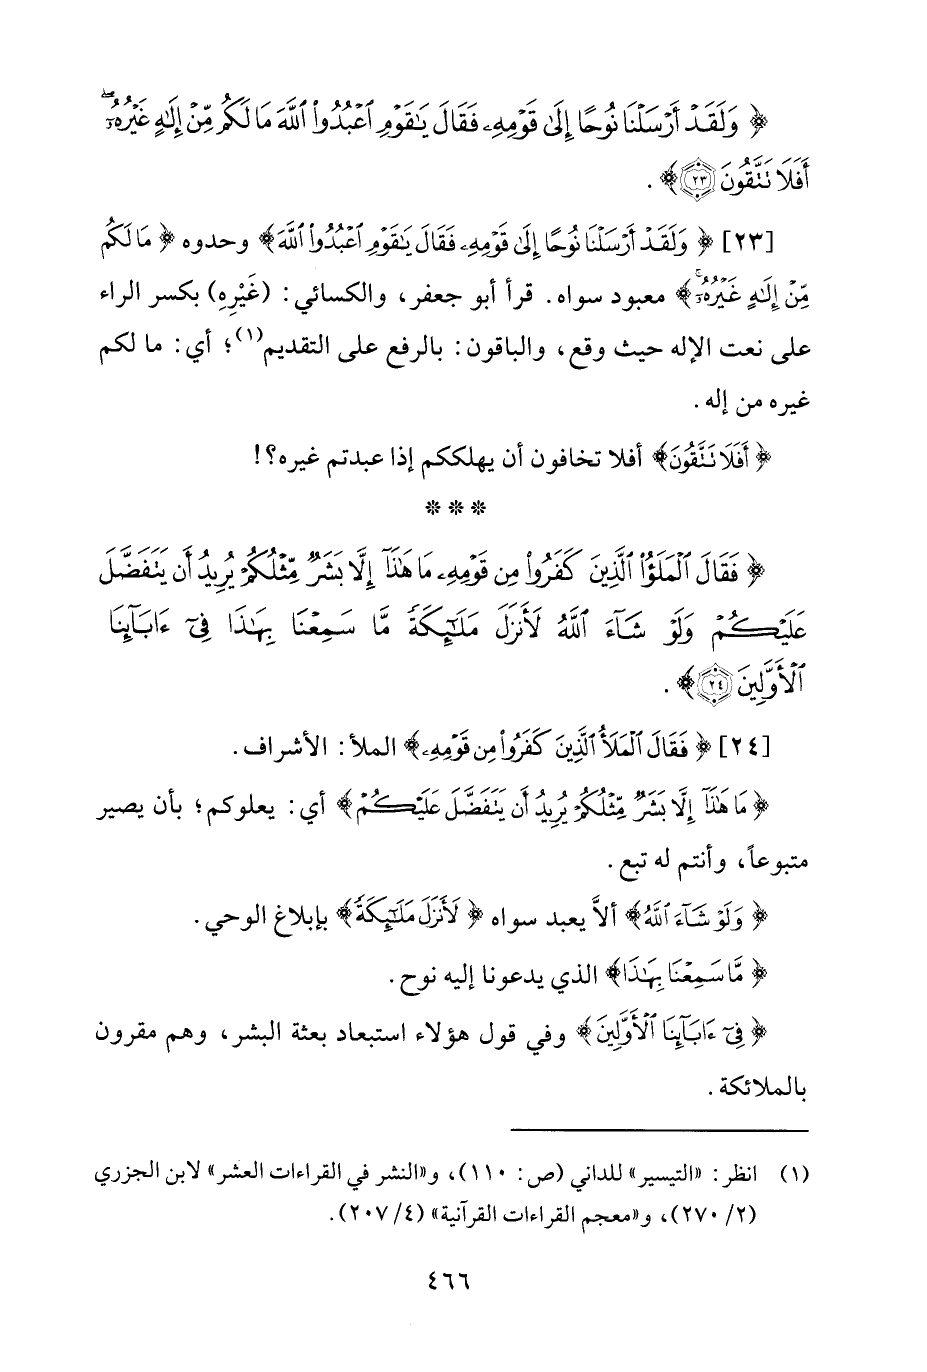 ﴿ وَلَقَدْ أَرْسَلْنَا نُوحًا إِلَىٰ قَوْمِهِۦ فَقَالَ يَـٰقَوْمِ ٱعْبُدُوا۟ ٱللَّهَ مَا لَكُم مِّنْ إِلَـٰهٍ غَيْرُهُۥٓ ۖ
أَفَلَا تَتَّقُونَ ٢٣﴾ .
[٢٣] ﴿ وَلَقَدْ أَرْسَلْنَا نُوحًا إِلَىٰ قَوْمِهِۦ فَقَالَ يَـٰقَوْمِ ٱعْبُدُوا۟ ٱللَّهَ﴾ وحدوه ﴿ مَا لَكُم
مِّنْ إِلَـٰهٍ غَيْرُهُۥٓ ۚ﴾ معبود سواه. قرأ أبو جعفر، والكسائي: (غَيْرِهِ) بكسر الراء
على نعت الإله حيث وقع، والباقون: بالرفع على التقديم(١)؛ أي: ما لكم
غيره من إله.
﴿ أَفَلَا تَتَّقُونَ﴾ أفلا تخافون أن يهلككم إذا عبدتم غيره؟!
* * *
﴿ فَقَالَ ٱلْمَلَؤُا۟ ٱلَّذِينَ كَفَرُوا۟ مِن قَوْمِهِۦ مَا هَـٰذَآ إِلَّا بَشَرٌ مِّثْلُكُمْ يُرِيدُ أَن يَتَفَضَّلَ
عَلَيْكُمْ وَلَوْ شَآءَ ٱللَّهُ لَأَنزَلَ مَلَـٰٓئِكَةً مَّا سَمِعْنَا بِهَـٰذَا فِىٓ ءَابَآئِنَا
ٱلْأَوَّلِينَ ٢٤﴾ .
[٢٤] ﴿ فَقَالَ ٱلْمَلَأُ ٱلَّذِينَ كَفَرُوا۟ مِن قَوْمِهِۦ﴾ الملأ: الأشراف.
﴿ مَا هَـٰذَآ إِلَّا بَشَرٌ مِّثْلُكُمْ يُرِيدُ أَن يَتَفَضَّلَ عَلَيْكُمْ﴾ أي: يعلوكم؛ بأن يصير
متبوعاً، وأنتم له تبع.
﴿ وَلَوْ شَآءَ ٱللَّهُ﴾ ألاَّ يعبد سواه ﴿ لَأَنزَلَ مَلَـٰٓئِكَةً﴾ بإبلاغ الوحي.
﴿ مَّا سَمِعْنَا بِهَـٰذَا﴾ الذي يدعونا إليه نوح.
﴿ فِىٓ ءَابَآئِنَا ٱلْأَوَّلِينَ﴾ وفي قول هؤلاء استبعاد بعثة البشر، وهم مقرون
بالملائكة.
(١) انظر: «التيسير» للداني (ص: ١١٠)، و«النشر في القراءات العشر» لابن الجزري
(٢/ ٢٧٠)، و«معجم القراءات القرآنية» (٤/ ٢٠٧).
٤٦٦